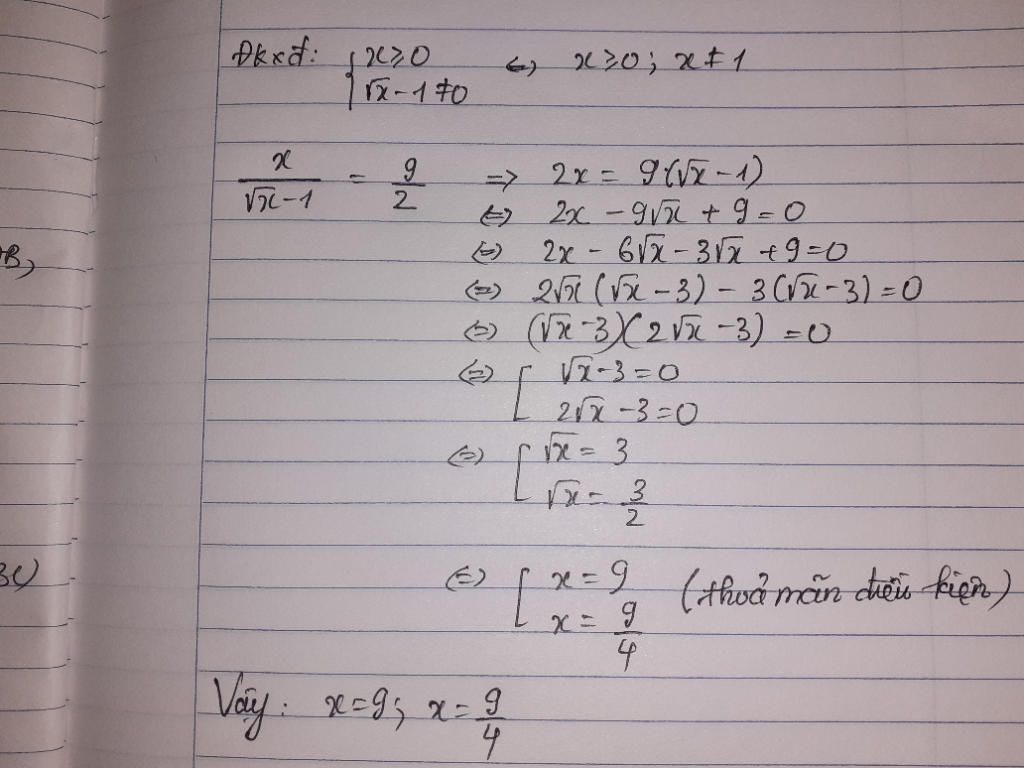 Đkxđ: { x≥0 ⇔ x≥0; x≠1
√x-1≠0
x/(√x-1) = 9/2 ⇒ 2x = 9(√x-1)
⇔ 2x - 9√x + 9 = 0
⇔ 2x - 6√x - 3√x + 9 = 0
⇔ 2√x(√x-3) - 3(√x-3) = 0
⇔ (√x-3)(2√x-3) = 0
⇔ [ √x-3=0
2√x-3=0
⇔ [ √x = 3
√x = 3/2
⇔ [ x = 9 (thoả mãn điều kiện)
x = 9/4
Vậy: x=9; x=9/4